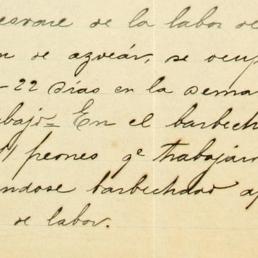 de la labor de
n de azucar, se ocup
-22 días en la semana
abajo= En el barbech
1 peones qe trabajaro
ndose barbechado ap
s de labor.